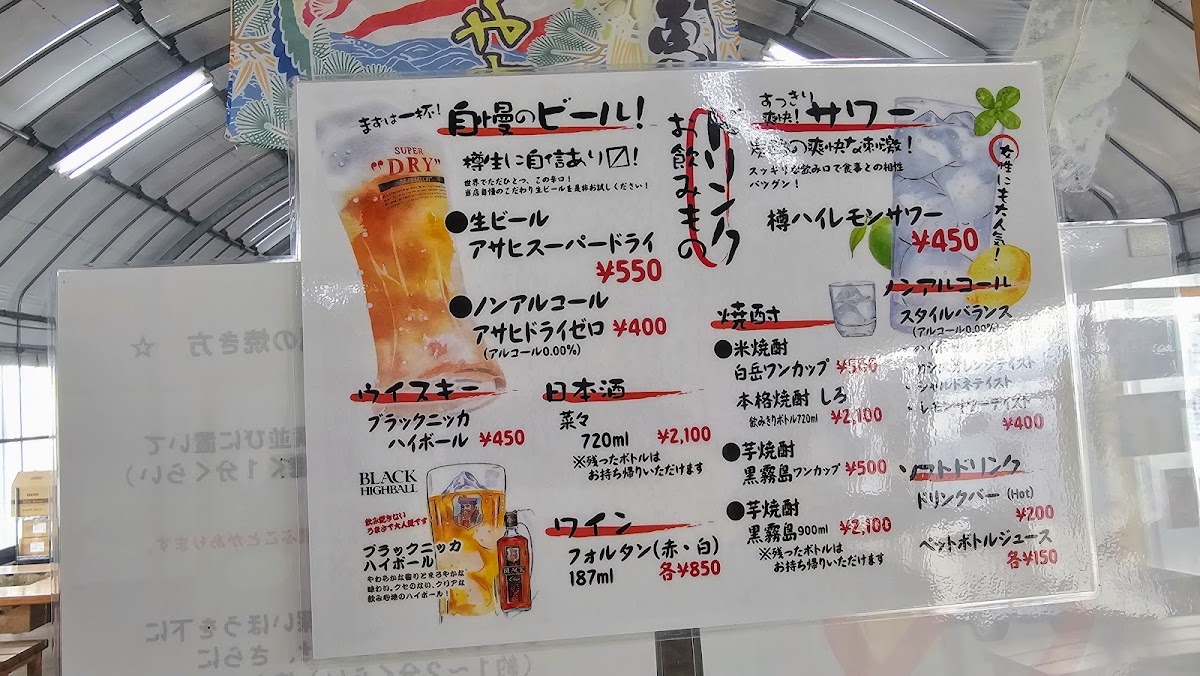 まずは一杯!
自慢のビール!
SUPER
"DRY"
樽生に自信あり〼!
世界でただひとつ、この辛口!
当店自慢のこだわり生ビールを是非お試しください!
●生ビール
アサヒスーパードライ
¥550
●ノンアルコール
アサヒドライゼロ ¥400
(アルコール0.00%)
ドリンク
お飲みもの
すっきり
爽快! サワー
の爽快な刺激!
スッキリな飲み口で食事との相性
バツグン!
女性にも大人気!
樽ハイレモンサワー
¥450
ウイスキー
ブラックニッカ
ハイボール ¥450
BLACK
HIGHBALL
飲み飽きない
うまさで大人気です
ブラックニッカ
ハイボール
やわらかな香りとまろやかな
味わい。クセのない、クリアな
飲み心地のハイボール!
BLACK
日本酒
菜々
720ml ¥2,100
※残ったボトルは
お持ち帰りいただけます
ワイン
フォルタン(赤・白)
187ml 各¥850
焼酎
●米焼酎
白岳ワンカップ ¥500
本格焼酎 しろ
飲みきりボトル720ml ¥2,100
●芋焼酎
黒霧島ワンカップ ¥500
●芋焼酎
黒霧島900ml ¥2,100
※残ったボトルは
お持ち帰りいただけます
ノンアルコール
スタイルバランス
(アルコール0.00%)
カシスオレンジテイスト
シャルドネテイスト
¥400
ソフトドリンク
ドリンクバー (Hot)
¥200
ペットボトルジュース
各¥150
の焼き方 ☆
並びに置いて
1分くらい)
ことがあります。
いほうを下に
、さらに